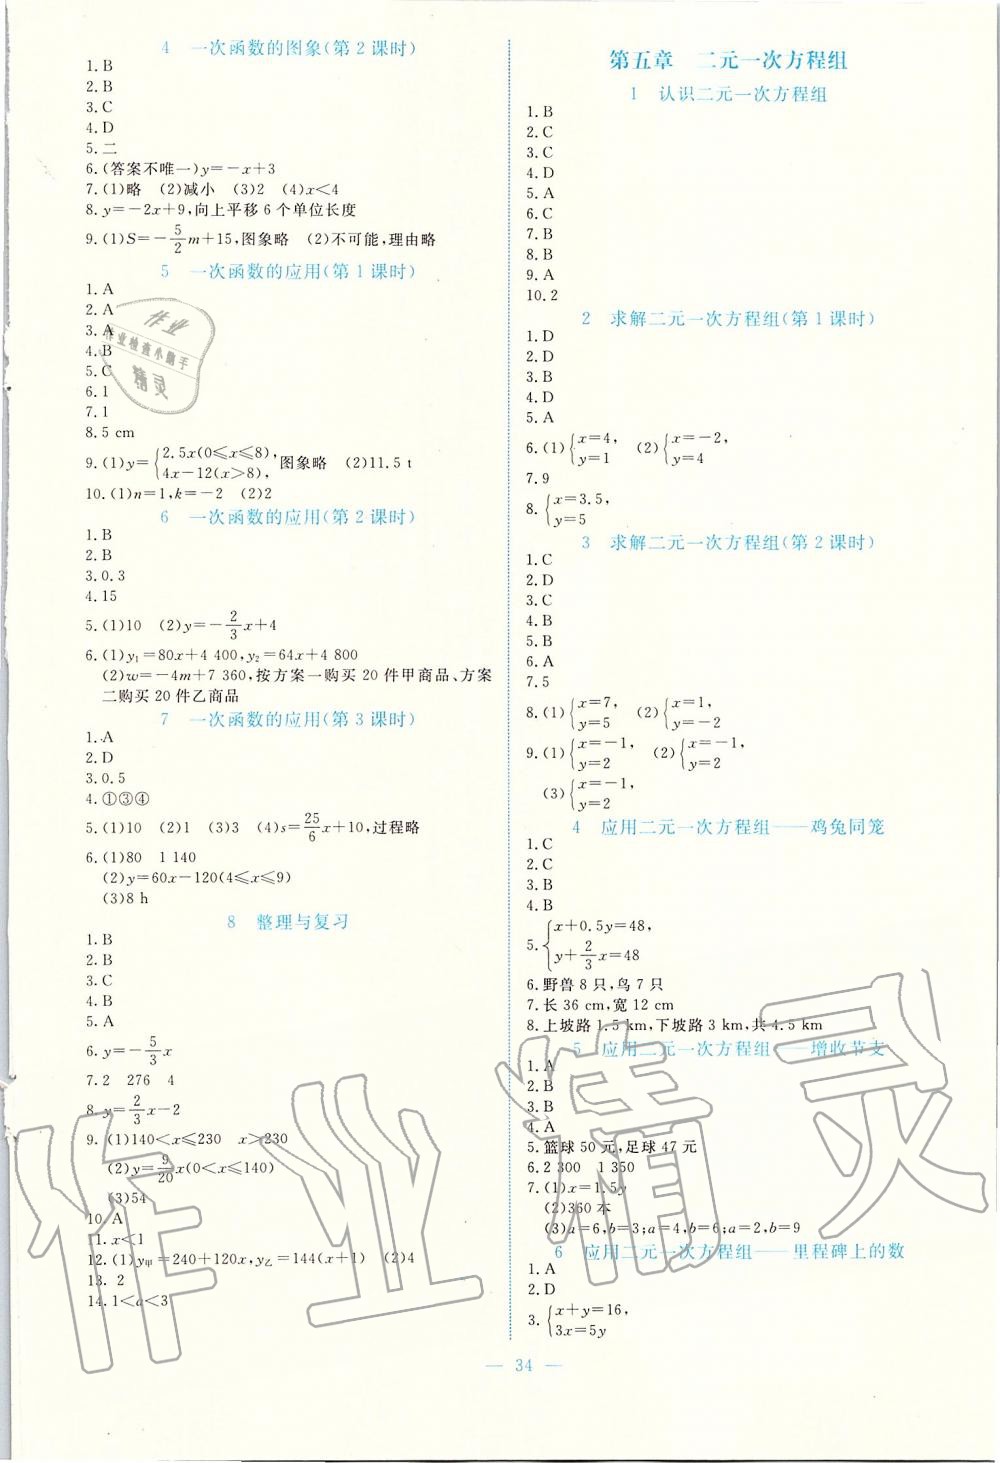 4 一次函数的图象(第2课时)
1.B
2.B
3.C
4.D
5.二
6.(答案不唯一)y=-x+3
7.(1)略 (2)减小 (3)2 (4)x<4
8.y=-2x+9,向上平移6个单位长度
9.(1)S=-5/2m+15,图象略 (2)不可能,理由略
5 一次函数的应用(第1课时)
1.A
2.A
3.A
4.B
5.C
6.1
7.1
8.5 cm
9.(1)y={2.5x(0⩽x⩽8),
4x-12(x>8), 图象略 (2)11.5 t
10.(1)n=1,k=-2 (2)2
6 一次函数的应用(第2课时)
1.B
2.B
3.0.3
4.15
5.(1)10 (2)y=-2/3x+4
6.(1)y₁=80x+4 400,y₂=64x+4 800
(2)w=-4m+7 360,按方案一购买20件甲商品、方案
二购买20件乙商品
7 一次函数的应用(第3课时)
1.A
2.D
3.0.5
4.①③④
5.(1)10 (2)1 (3)3 (4)s=25/6x+10,过程略
6.(1)80 1 140
(2)y=60x-120(4⩽x⩽9)
(3)8 h
8 整理与复习
1.B
2.B
3.C
4.B
5.A
6.y=-5/3x
7.2 276 4
8.y=2/3x-2
9.(1)140<x⩽230 x>230
(2)y=9/20x(0<x⩽140)
(3)54
10.A
11.x<1
12.(1)y甲=240+120x,y乙=144(x+1) (2)4
13.2
14.1<a<3
第五章 二元一次方程组
1 认识二元一次方程组
1.B
2.C
3.C
4.D
5.A
6.C
7.B
8.B
9.A
10.2
2 求解二元一次方程组(第1课时)
1.D
2.D
3.B
4.D
5.A
6.(1){x=4, (2){x=-2,
y=1 y=4
7.9
8.{x=3.5,
y=5
3 求解二元一次方程组(第2课时)
1.C
2.D
3.C
4.B
5.B
6.A
7.5
8.(1){x=7, (2){x=1,
y=5 y=-2
9.(1){x=-1, (2){x=-1,
y=2 y=2
(3){x=-1,
y=2
4 应用二元一次方程组——鸡兔同笼
1.C
2.C
3.B
4.B
5.{x+0.5y=48,
y+2/3x=48
6.野兽8只,鸟7只
7.长36 cm,宽12 cm
8.上坡路1.5 km,下坡路3 km,共4.5 km
5 应用二元一次方程组——增收节支
1.A
2.B
3.B
4.A
5.篮球50元,足球47元
6.2 300 1 350
7.(1)x=1.5y
(2)360本
(3)a=6,b=3;a=4,b=6;a=2,b=9
6 应用二元一次方程组——里程碑上的数
1.A
2.D
3.{x+y=16,
3x=5y
— 34 —
作业
作业检查小助手
精灵
作业精灵